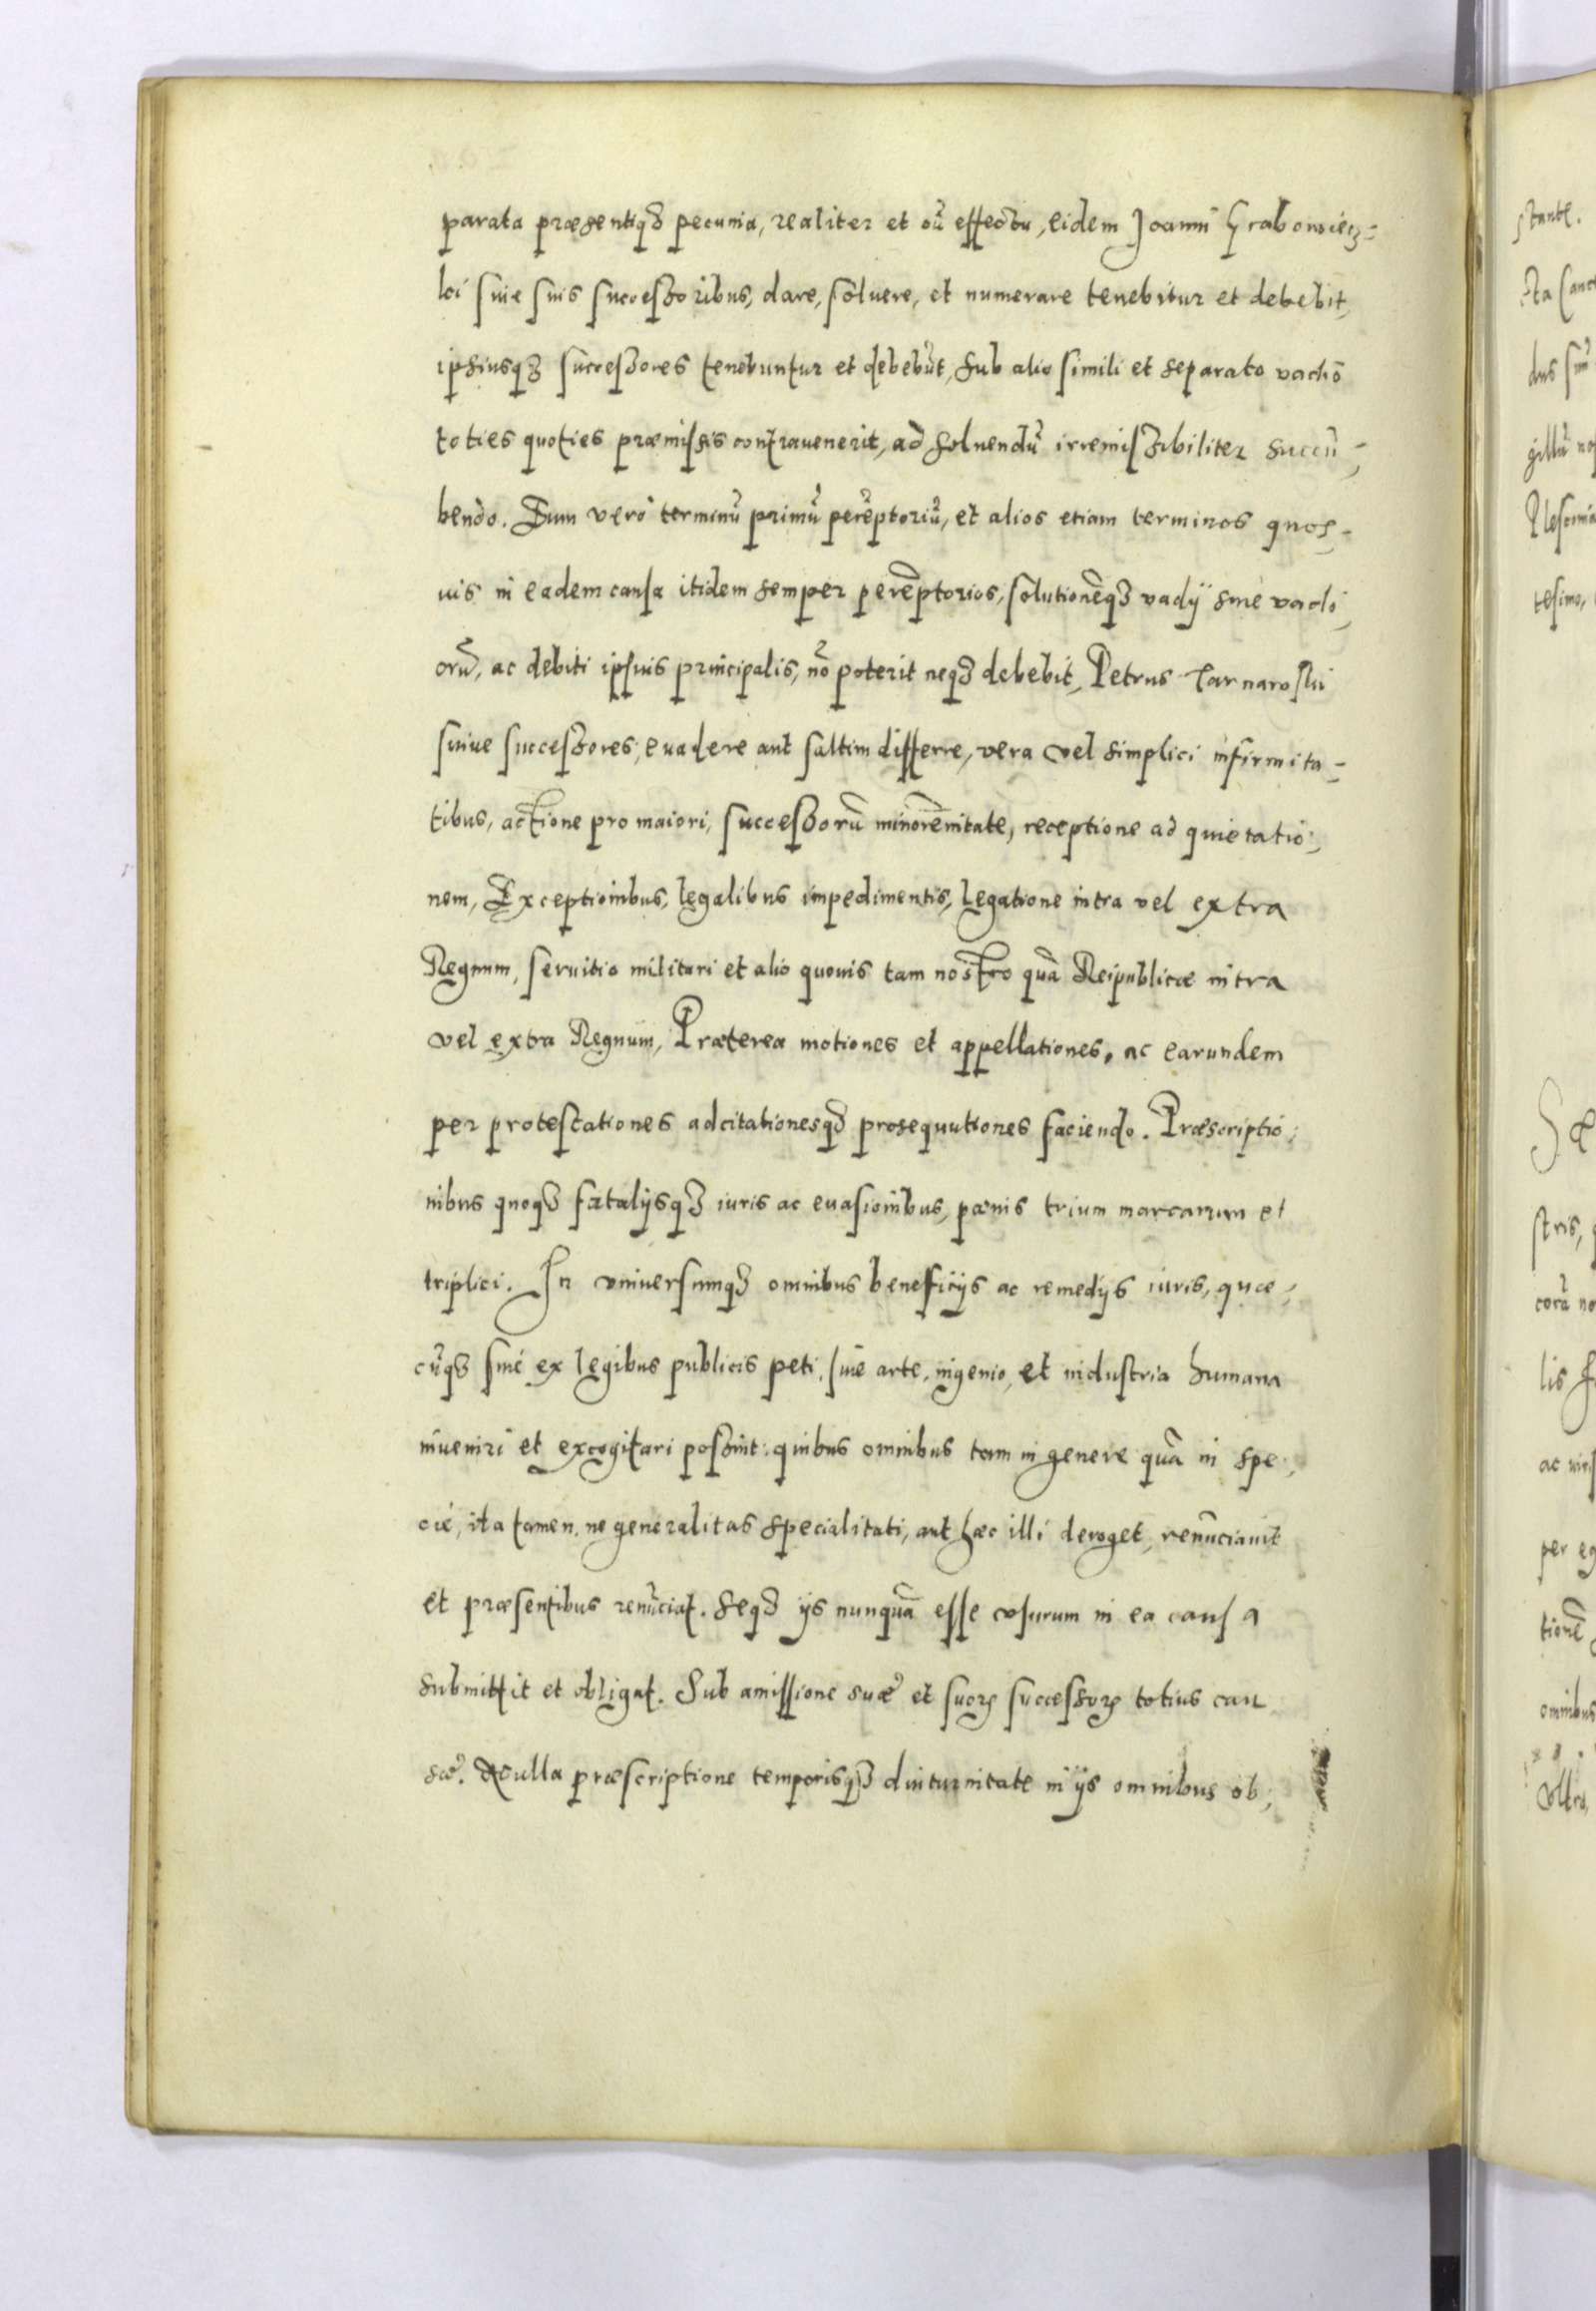 parata præsentiqȝ pecunia, realiter et cũ effectu, eidem Joanni Grabowiecz-
kei siue suis successoribus, dare, soluere, et numerare tenebitur et debebit,
ipsiusqȝ successores tenebuntur et debebũt, sub alio simili et separato vadiõ
toties quoties præmissis contrauenerit, ad soluendũ irremissibiliter succũ-
bendo. Eum verò terminũ primũ perẽptoriũ, et alios etiam terminos quos-
uis in eadem causa itidem semper perẽptorios, solutionẽqȝ vadij siue vadi
orũ, ac debiti ipsius principalis, nõ poterit neqȝ debebit, Petrus Tarnaroski
suiue successores, euadere aut saltim differre, vera vel simplici infirmita-
tibus, actione pro maiori, successorũ minorẽnitate, receptione ad quietatio-
nem, Exceptionibus, legalibus impedimentis, legatione intra vel extra
Regnum, seruitio militari et alio quouis tam nostro quã Reipublicæ intra
vel extra Regnum, Præterea motiones et appellationes, ac earundem
per protestationes adcitationesqȝ prosequutiones faciendo. Præscriptio-
nibus quoqȝ fatalijsqȝ iuris ac euasionibus, pænis trium marcarum et
triplici. In vniuersumqȝ omnibus beneficijs ac remedijs iuris, quæ-
cũqȝ siue ex legibus publicis peti, siue arte, ingenio, et industria humana
inueniri et excogitari possint: quibus omnibus tam in genere quã in spe-
cie, ita tamen, ne generalitas specialitati, aut hæc illi deroget, renũciauit
et præsentibus renũciat. Seqȝ ijs nunquã esse vsurum in ea causa
submittit et obligat. Sub amissione suæ et suorꝝ successorꝝ totius cau
sæ. Nulla præscriptione temporisqȝ diuturnitate in ijs omnibus ob-